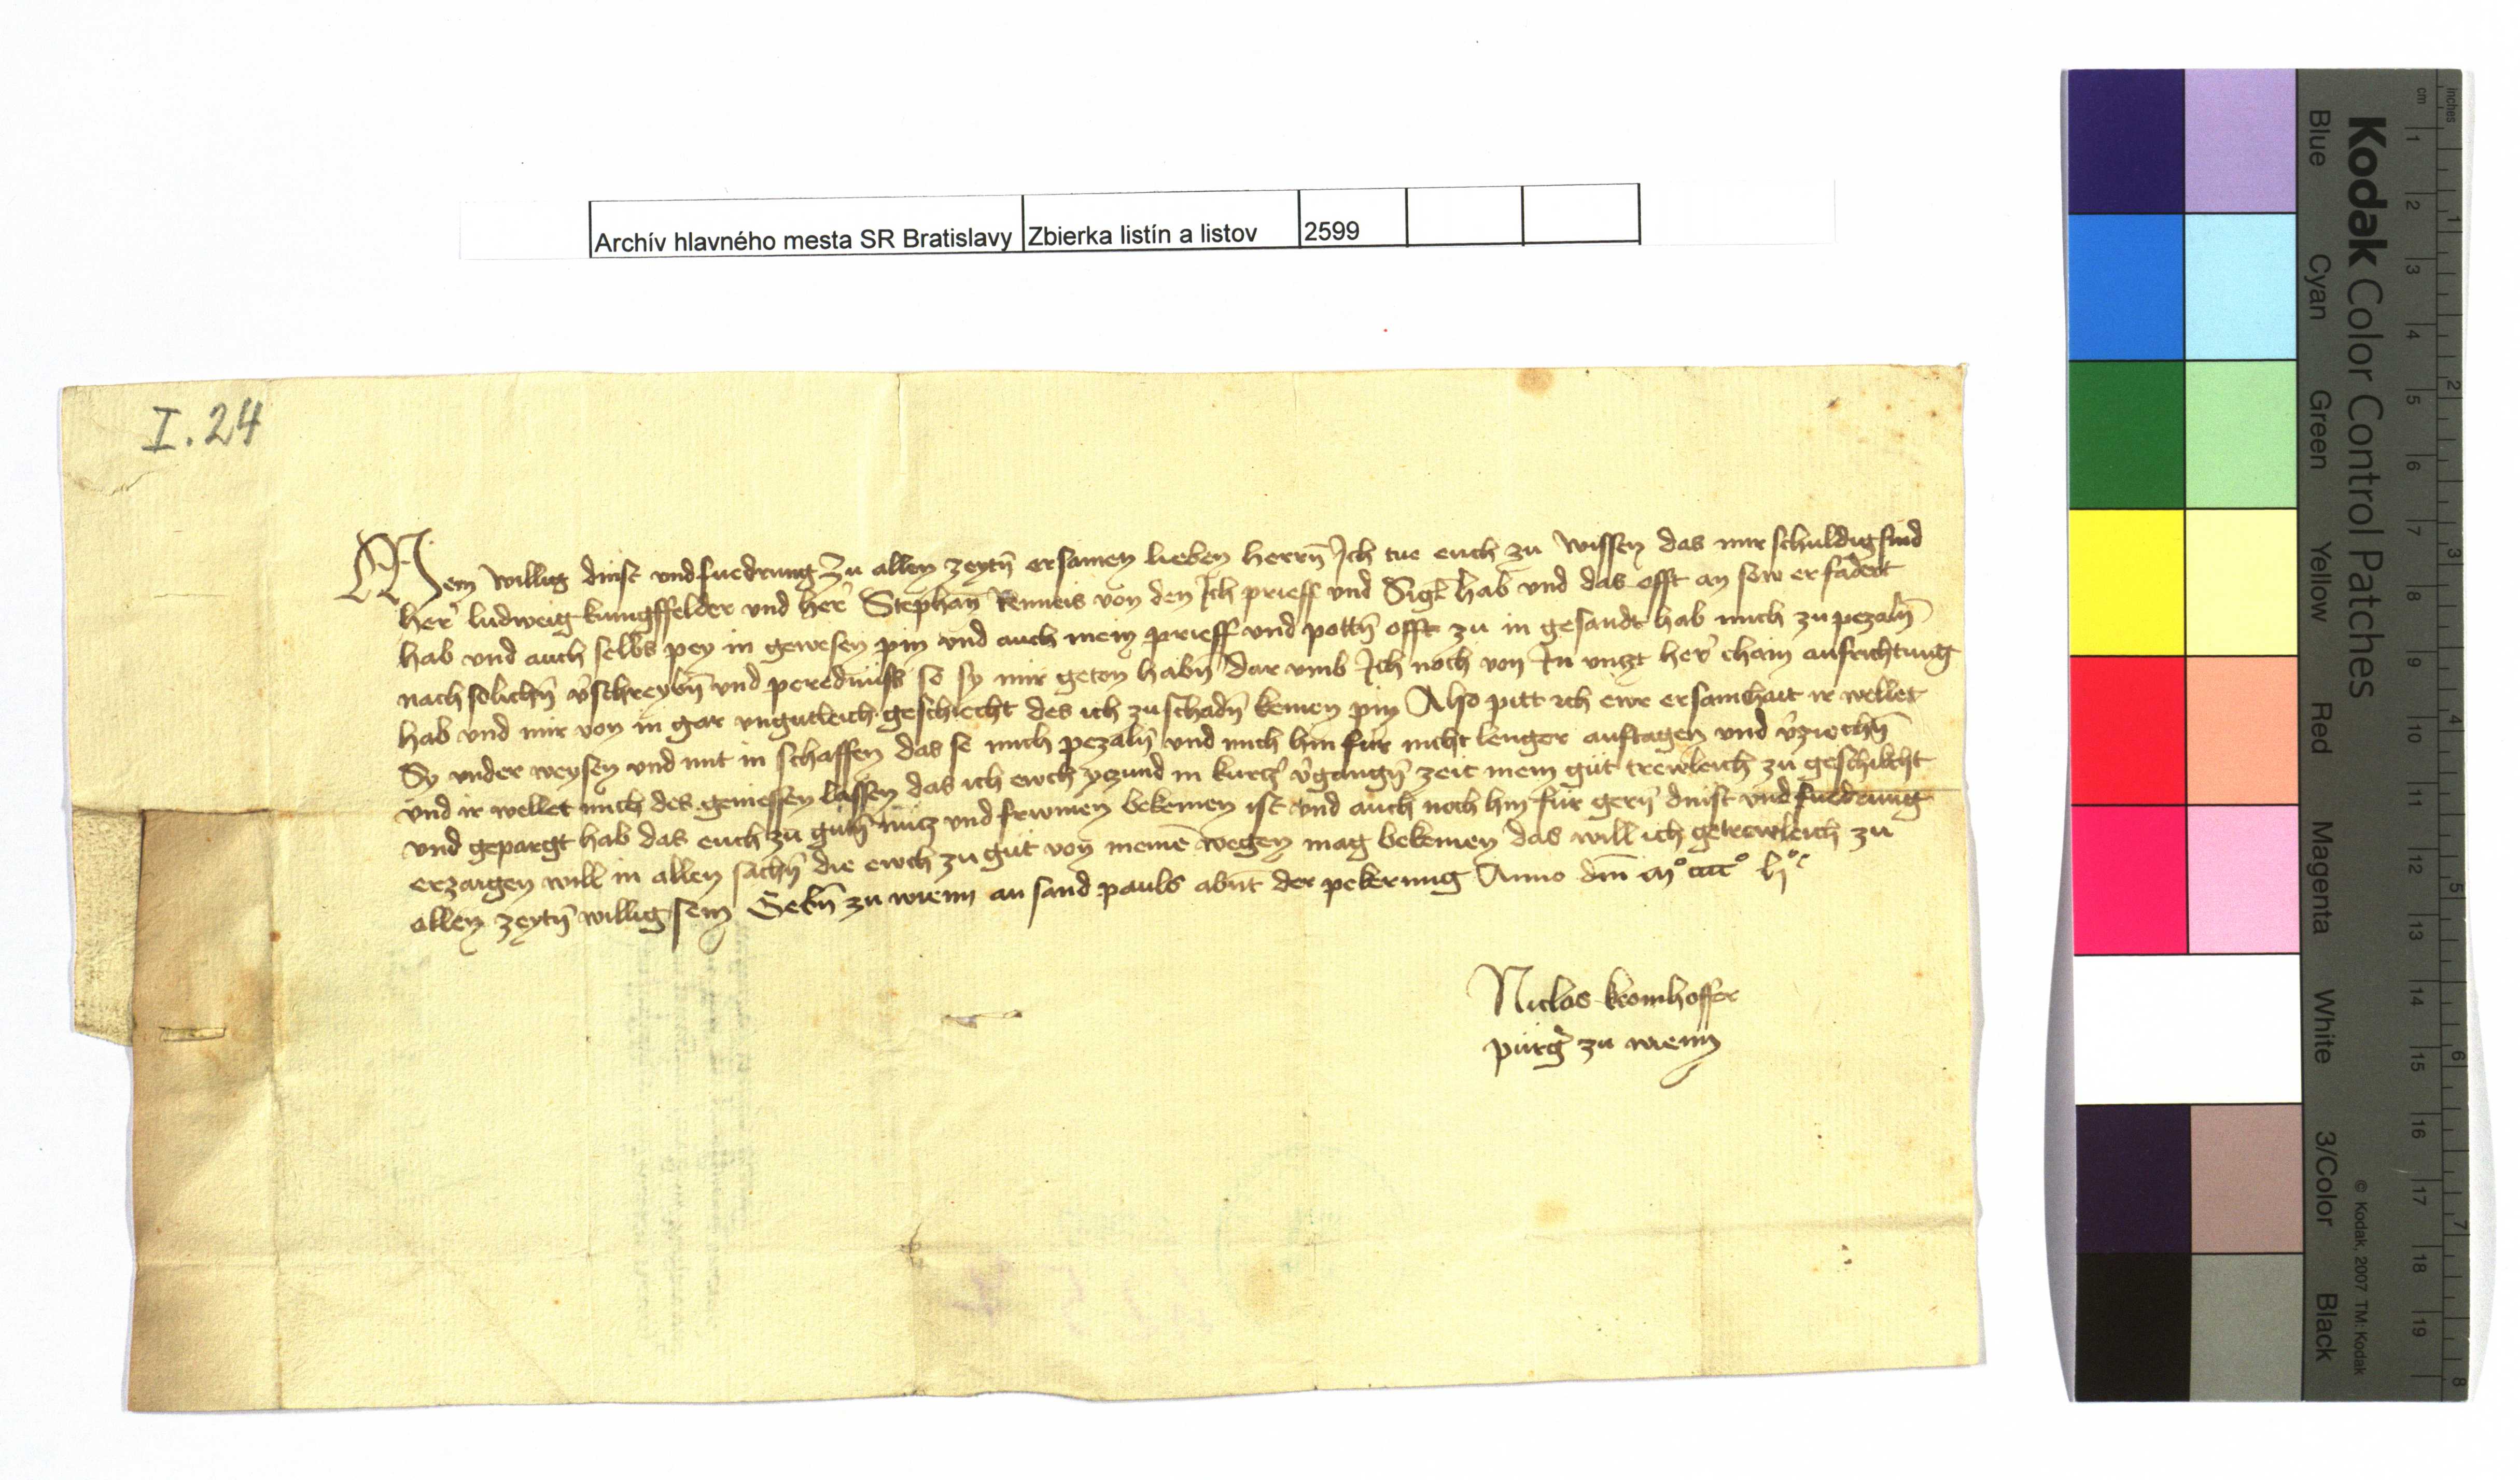 Archív hlavného mesta SR Bratislavy Zbierka listín a listov 2599
I. 24
Mein willig dinst und fuedrung zu allen zeytñ ersamen lieben herrñ Ich tue euch zu wissen das mir schuldig sind
her ludweig kunigsfelder und her Stephañ Renneis von den Ich prieff und Sigl hab und das offt an sew erfadert
hab und auch selbs pey in gewesen pin und auch mein prieff und pottñ offt zu in gesandt hab mich zu pezalñ
nach solichñ v̄schreybñ und perednuss so sy mir geton habñ dar umb Ich noch von In unczt her chain aufrichtung
hab und mir von in gar ungutleich geschiecht des ich zu schadñ kemen pin Also pitt ich ewr ersamchait ir wellet
Sy under weysen und mit in schaffen das se mich pezalñ und mich hin für nicht lenger auftagen und v̄ziechñ
und ir wellet mich des geniessen lassen das ich ewch yezund in kurcz v̄gangñ zeit mein gut trewleich zu geschikcht
und gepargt hab das euch zu gutñ nücz und frwmen bekemen ist und auch noch hin für gerñ dinst und fuedrung
erzaigen will in allen sachñ die ewch zu gut von meinē wegen mag bekemen das will ich getrewleich zu
allen zeytñ willig sein Gebñ zu wienn an sand pauls abñt der pekerung Anno dm̄ mº cccc º lj º
Niclas kromhoffer
purg̓ zu wienn
Kodak Color Control Patches
Blue Cyan Green Yellow Red Magenta White 3/Color Black
© Kodak, 2007 TM: Kodak
cm 1 2 3 4 5 6 7 8 9 10 11 12 13 14 15 16 17 18 19
inches 1 2 3 4 5 6 7 8